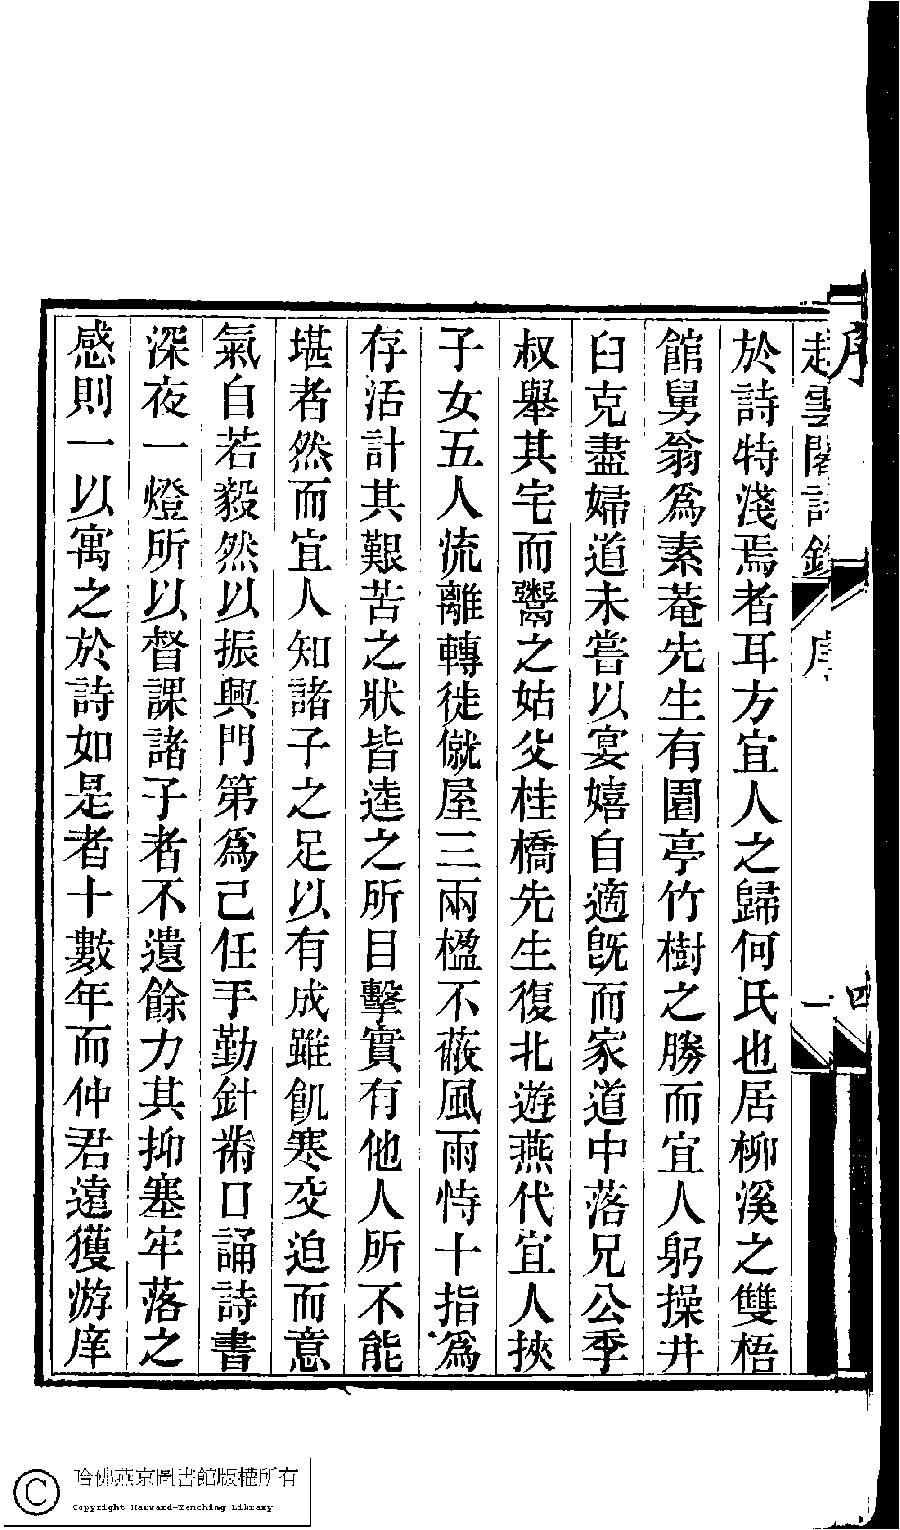 趙雲閣詩錄 序 一
於詩特淺焉者耳方宜人之歸何氏也居柳溪之雙梧
館舅翁爲素菴先生有園亭竹樹之勝而宜人躬操井
臼克盡婦道未嘗以宴嬉自適旣而家道中落兄公季
叔舉其宅而鬻之姑父桂橋先生復北遊燕代宜人挾
子女五人流離轉徙僦屋三兩楹不蔽風雨恃十指爲
存活計其艱苦之狀皆逵之所目擊實有他人所不能
堪者然而宜人知諸子之足以有成雖飢寒交迫而意
氣自若毅然以振興門第爲己任手勤針黹口誦詩書
深夜一燈所以督課諸子者不遺餘力其抑塞牢落之
感則一以寓之於詩如是者十數年而仲君遠獲游庠
哈佛燕京圖書館版權所有
Copyright Harvard-Yenching Library